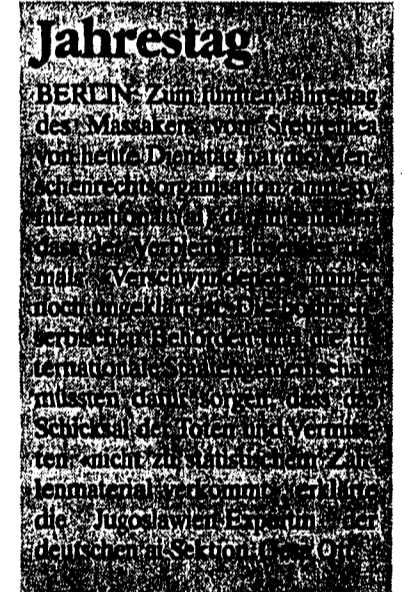 Jahrestag
BERLIN. Zum fünften Jahrestag
des Massakers von Srebrenica
von heute Dienstag hat die Men-
schenrechtsorganisation amnesty
international (ai) daran erinnert,
dass der Verbleib Tausender da-
mals «Verschwundener» immer
noch ungeklärt ist. Die bosnisch-
serbischen Behörden und die in-
ternationale Staatengemeinschaft
müssten dafür sorgen, dass das
Schicksal der Toten und Vermiss-
ten «nicht zu statistischem Zah-
lenmaterial verkommt», erklärte
die Jugoslawien-Expertin der
deutschen ai-Sektion,